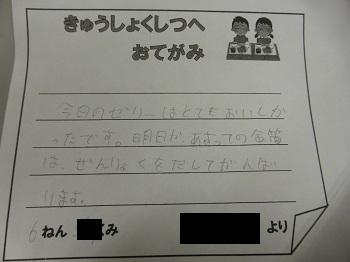 きゅうしょくしつへ
おてがみ
今日のゼリーはとてもおいしか
ったです。明日か、あさっての合宿
は、ぜんりょくをだしてがんば
ります。
6ねん くみ より